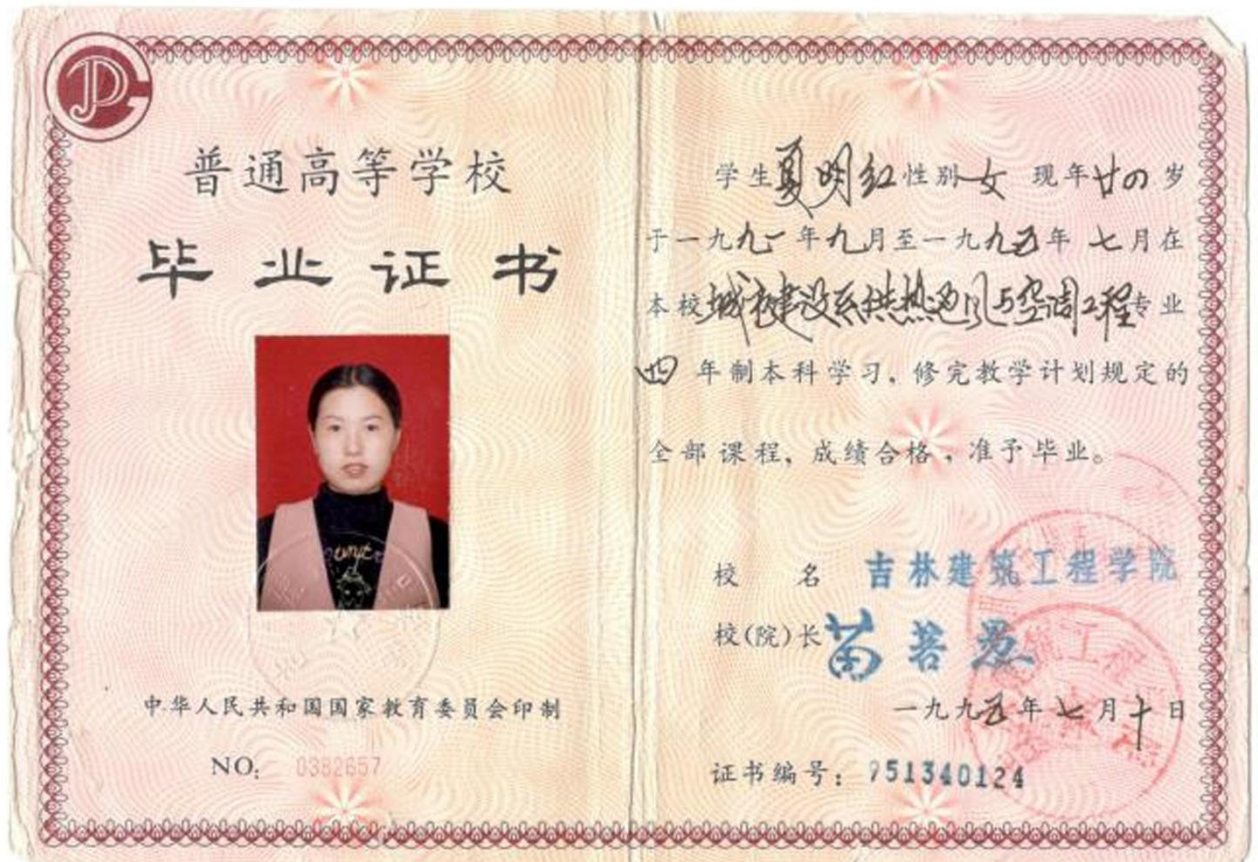 普通高等学校
毕业证书
中华人民共和国国家教育委员会印制
NO: 0382657
学生夏明红性别女 现年廿四岁
于一九九一年九月至一九九五年七月在
本校城市建设系供热通风与空调工程专业
四年制本科学习，修完教学计划规定的
全部课程，成绩合格，准予毕业。
校 名 吉林建筑工程学院
校(院)长 苗若愚
一九九五年七月十日
证书编号：951340124